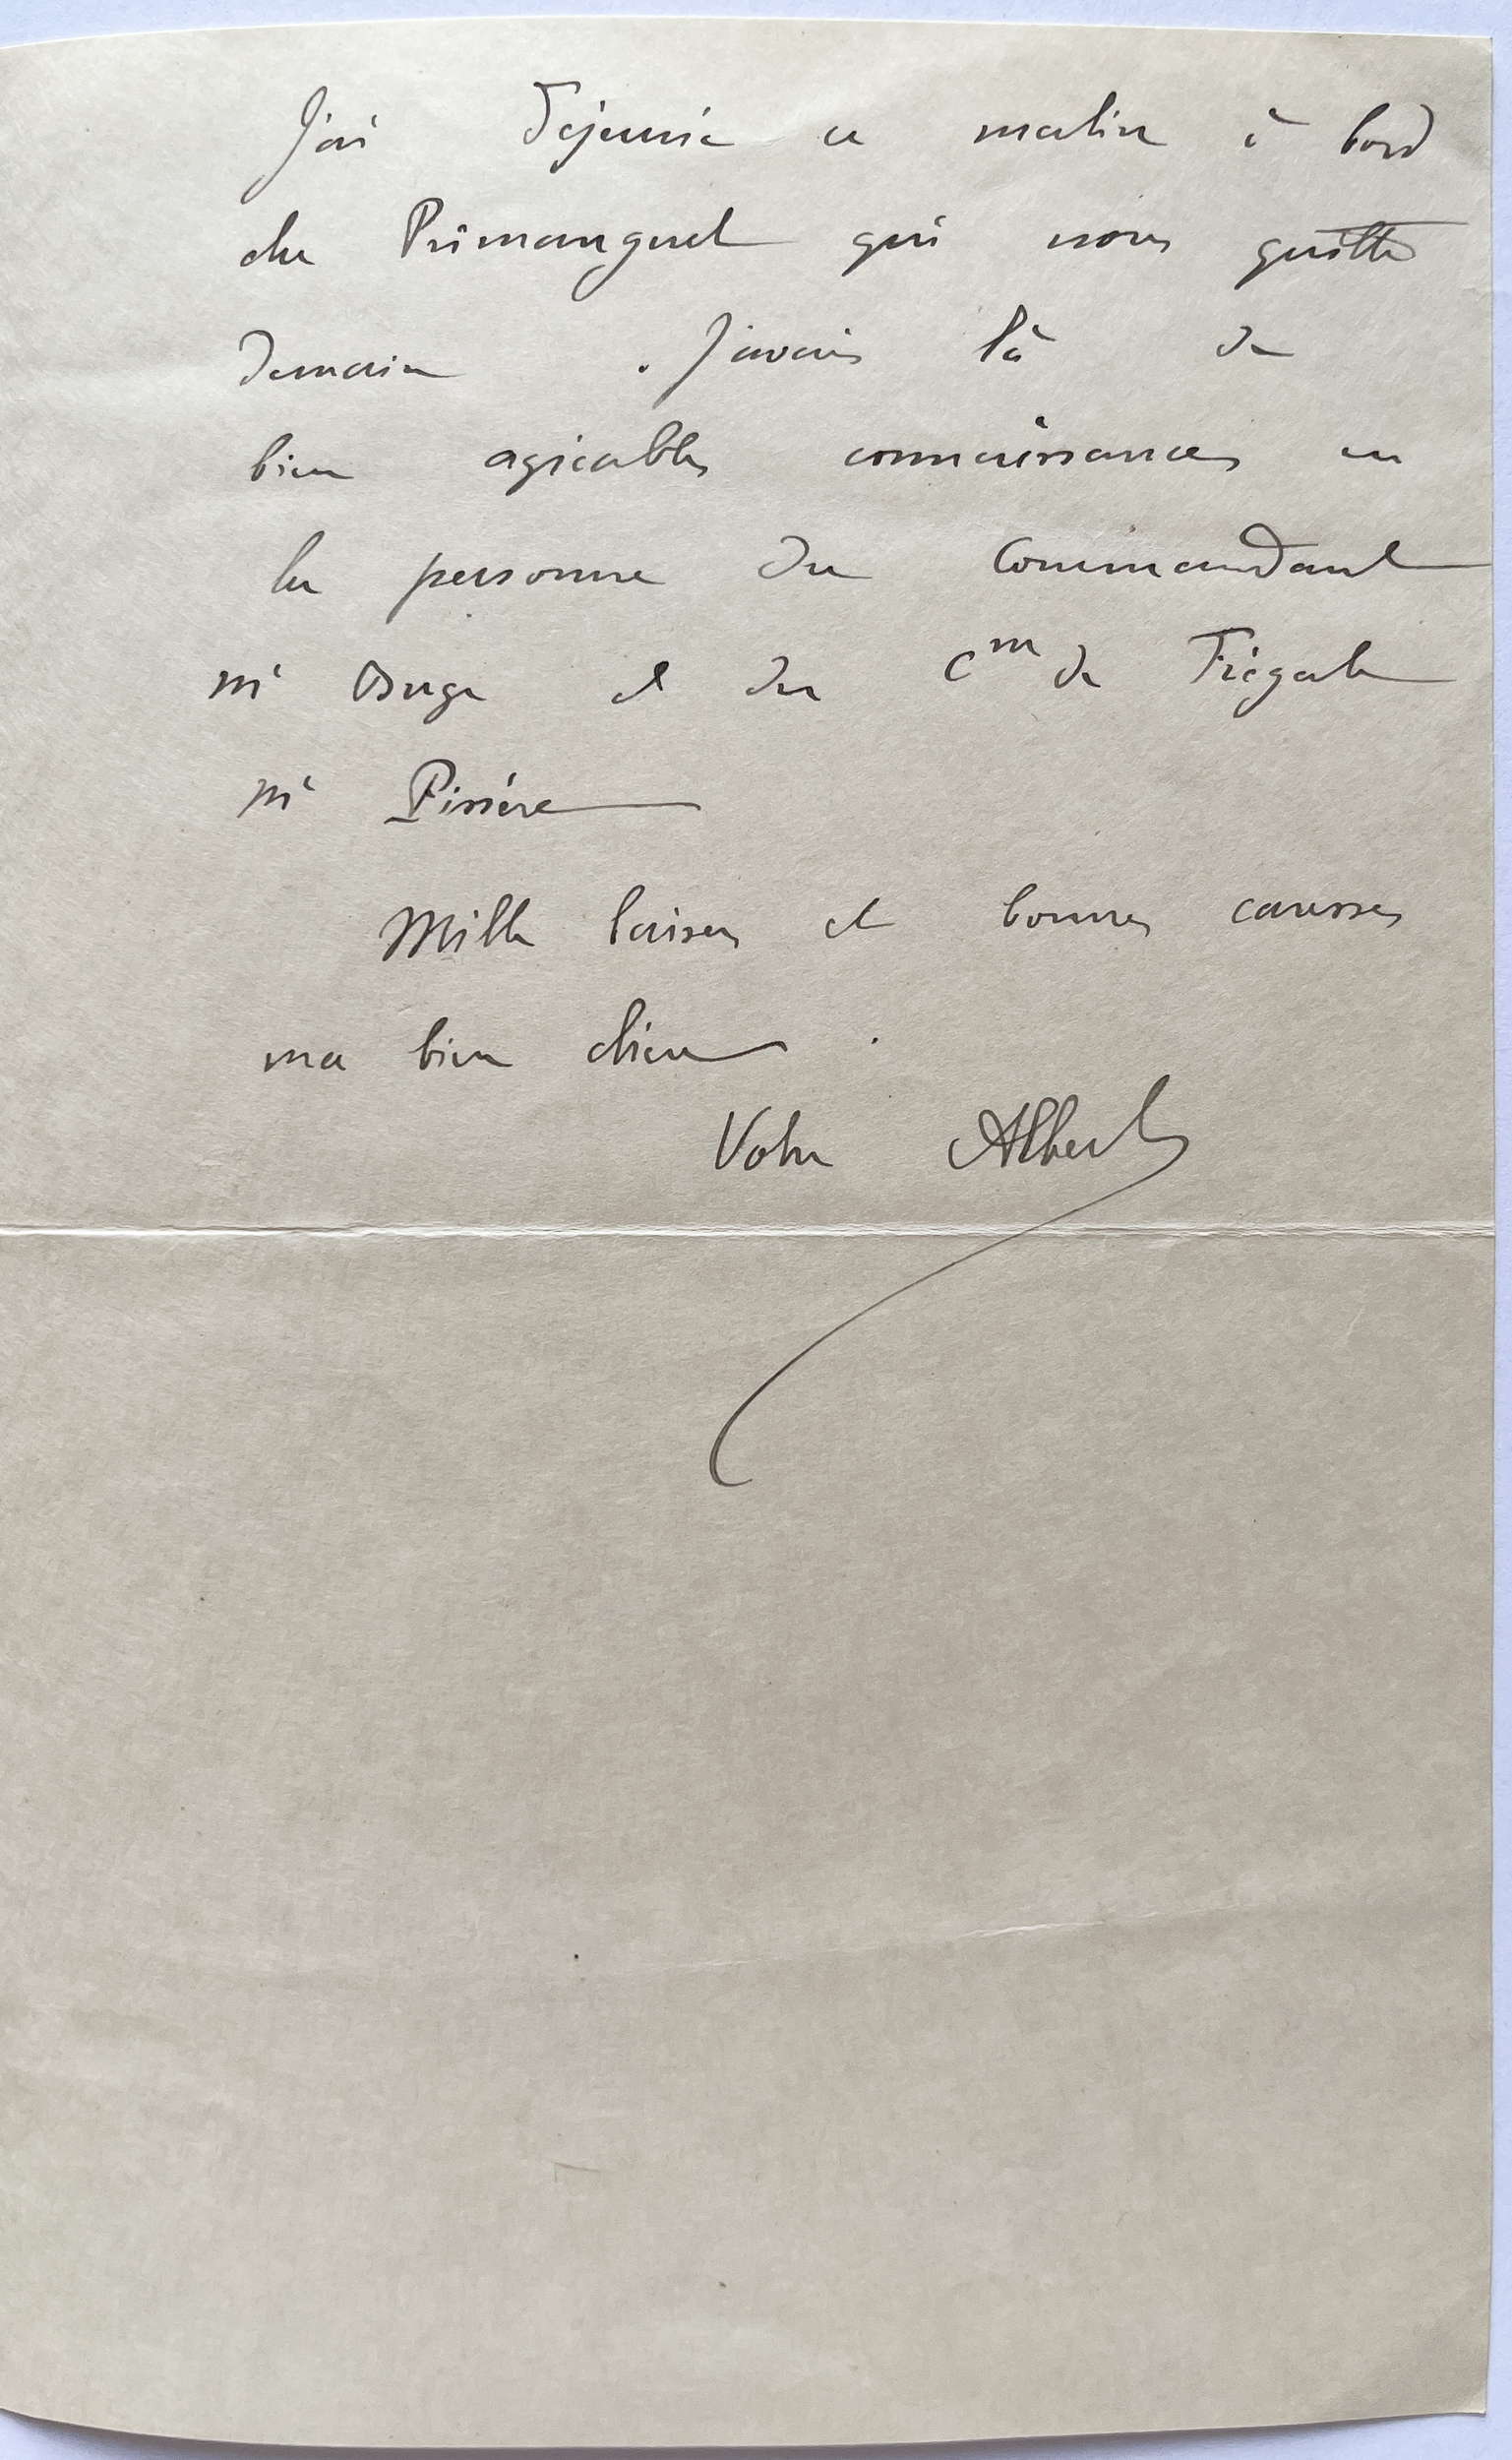 J'ai déjeuné ce matin à bord
du Primauguet qui nous quitte
demain . J'avais là de
bien agréables connaissances en
la personne du Commandant
Mr et du Cm de Frégate
Mr
Mille baisers et bonnes caresses
ma bien chère .
Votre Albert